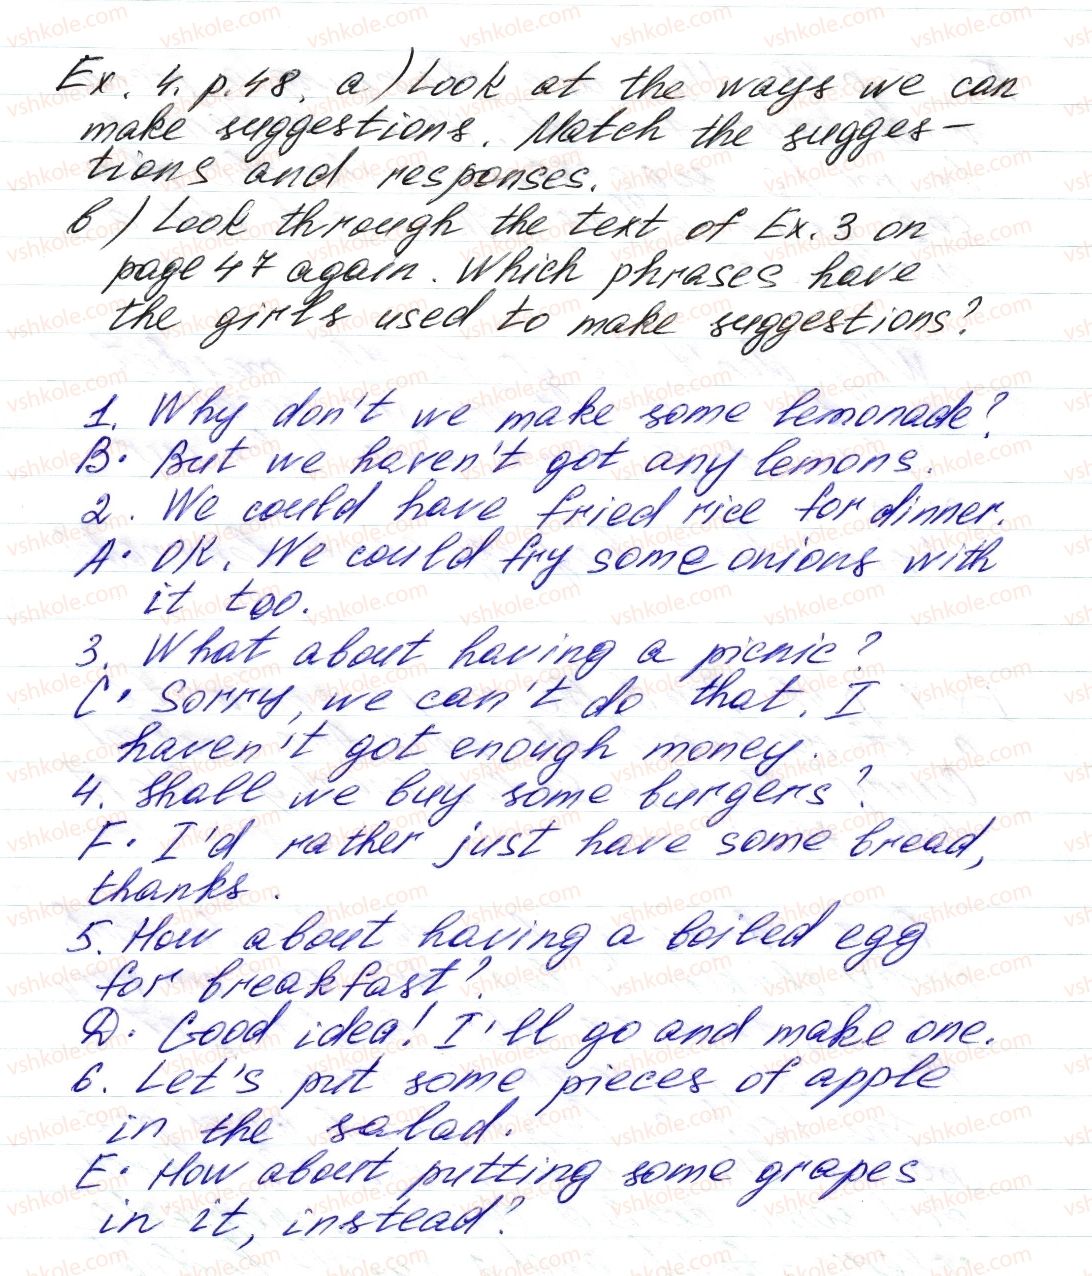 Ex. 4. p. 48. a) Look at the ways we can
make suggestions. Match the sugges-
tions and responses.
b) Look through the text of Ex. 3 on
page 47 again. Which phrases have
the girls used to make suggestions?
1. Why don't we make some lemonade?
B. But we haven't got any lemons.
2. We could have fried rice for dinner.
A. OK. We could fry some onions with
it too.
3. What about having a picnic?
C. Sorry, we can't do that. I
haven't got enough money.
4. Shall we buy some burgers?
F. I'd rather just have some bread,
thanks.
5. How about having a boiled egg
for breakfast?
D. Good idea! I'll go and make one.
6. Let's put some pieces of apple
in the salad.
E. How about putting some grapes
in it, instead?
vshkole.com